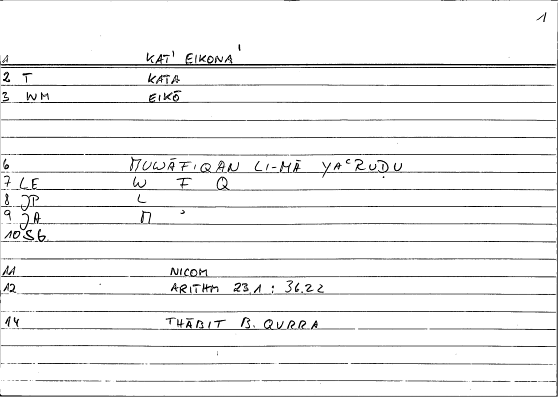 1
1 KAT' EIKONA'
2 T KATA
3 WM EIKŌ
6 MUWĀFIQAN LI-MĀ YAʿRUḌU
7 LE W F Q
8 JP L
9 JA M ʾ
10 SB
11 NICOM
12 ARITHM 23.1 : 36.22
14 THĀBIT B. QURRA